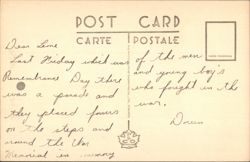 POST CARD
CARTE POSTALE
Dear
Last Friday which was
Remembrance Day there
was a parade and
they placed
on the steps and
round the War
Memorial in memory
of the men
and young boy's
who fought in the
war.